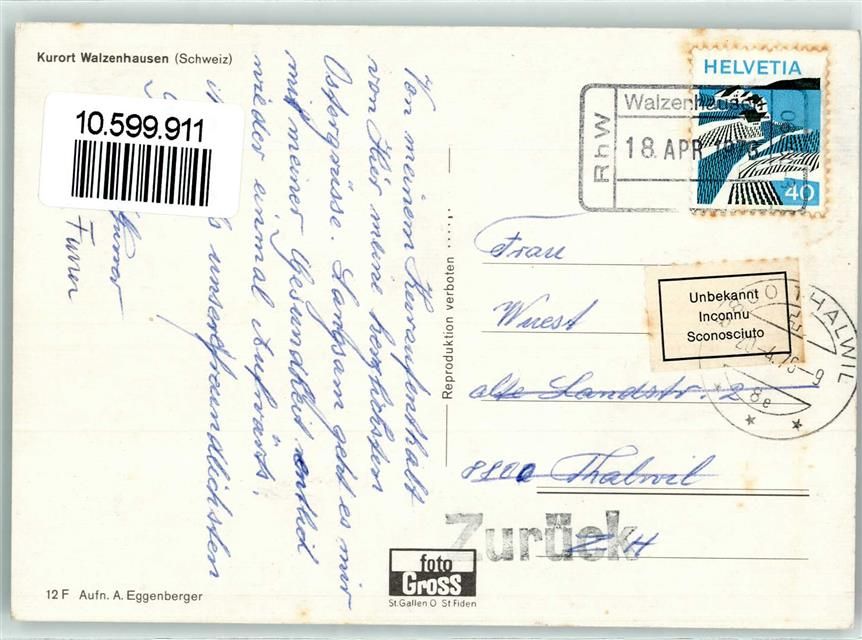 Kurort Walzenhausen (Schweiz)
10.599.911
Von meinem Kuraufenthalt
von Hier meine herzlichsten
Ostergrüsse. Langsam geht es mir
mit meiner Gesundheit endlich
wieder einmal Aufwärts.
unsere freundlichsten
Furrer
12 F Aufn. A. Eggenberger
Reproduktion verboten
foto
Gross
St. Gallen O St Fiden
HELVETIA
40
RhW
Walzenhausen
18. APR 1976
Unbekannt
Inconnu
Sconosciuto
THALWIL
Frau
Wuest
alte Landstr. 2
8800 Thalwil
ZH
Zurück